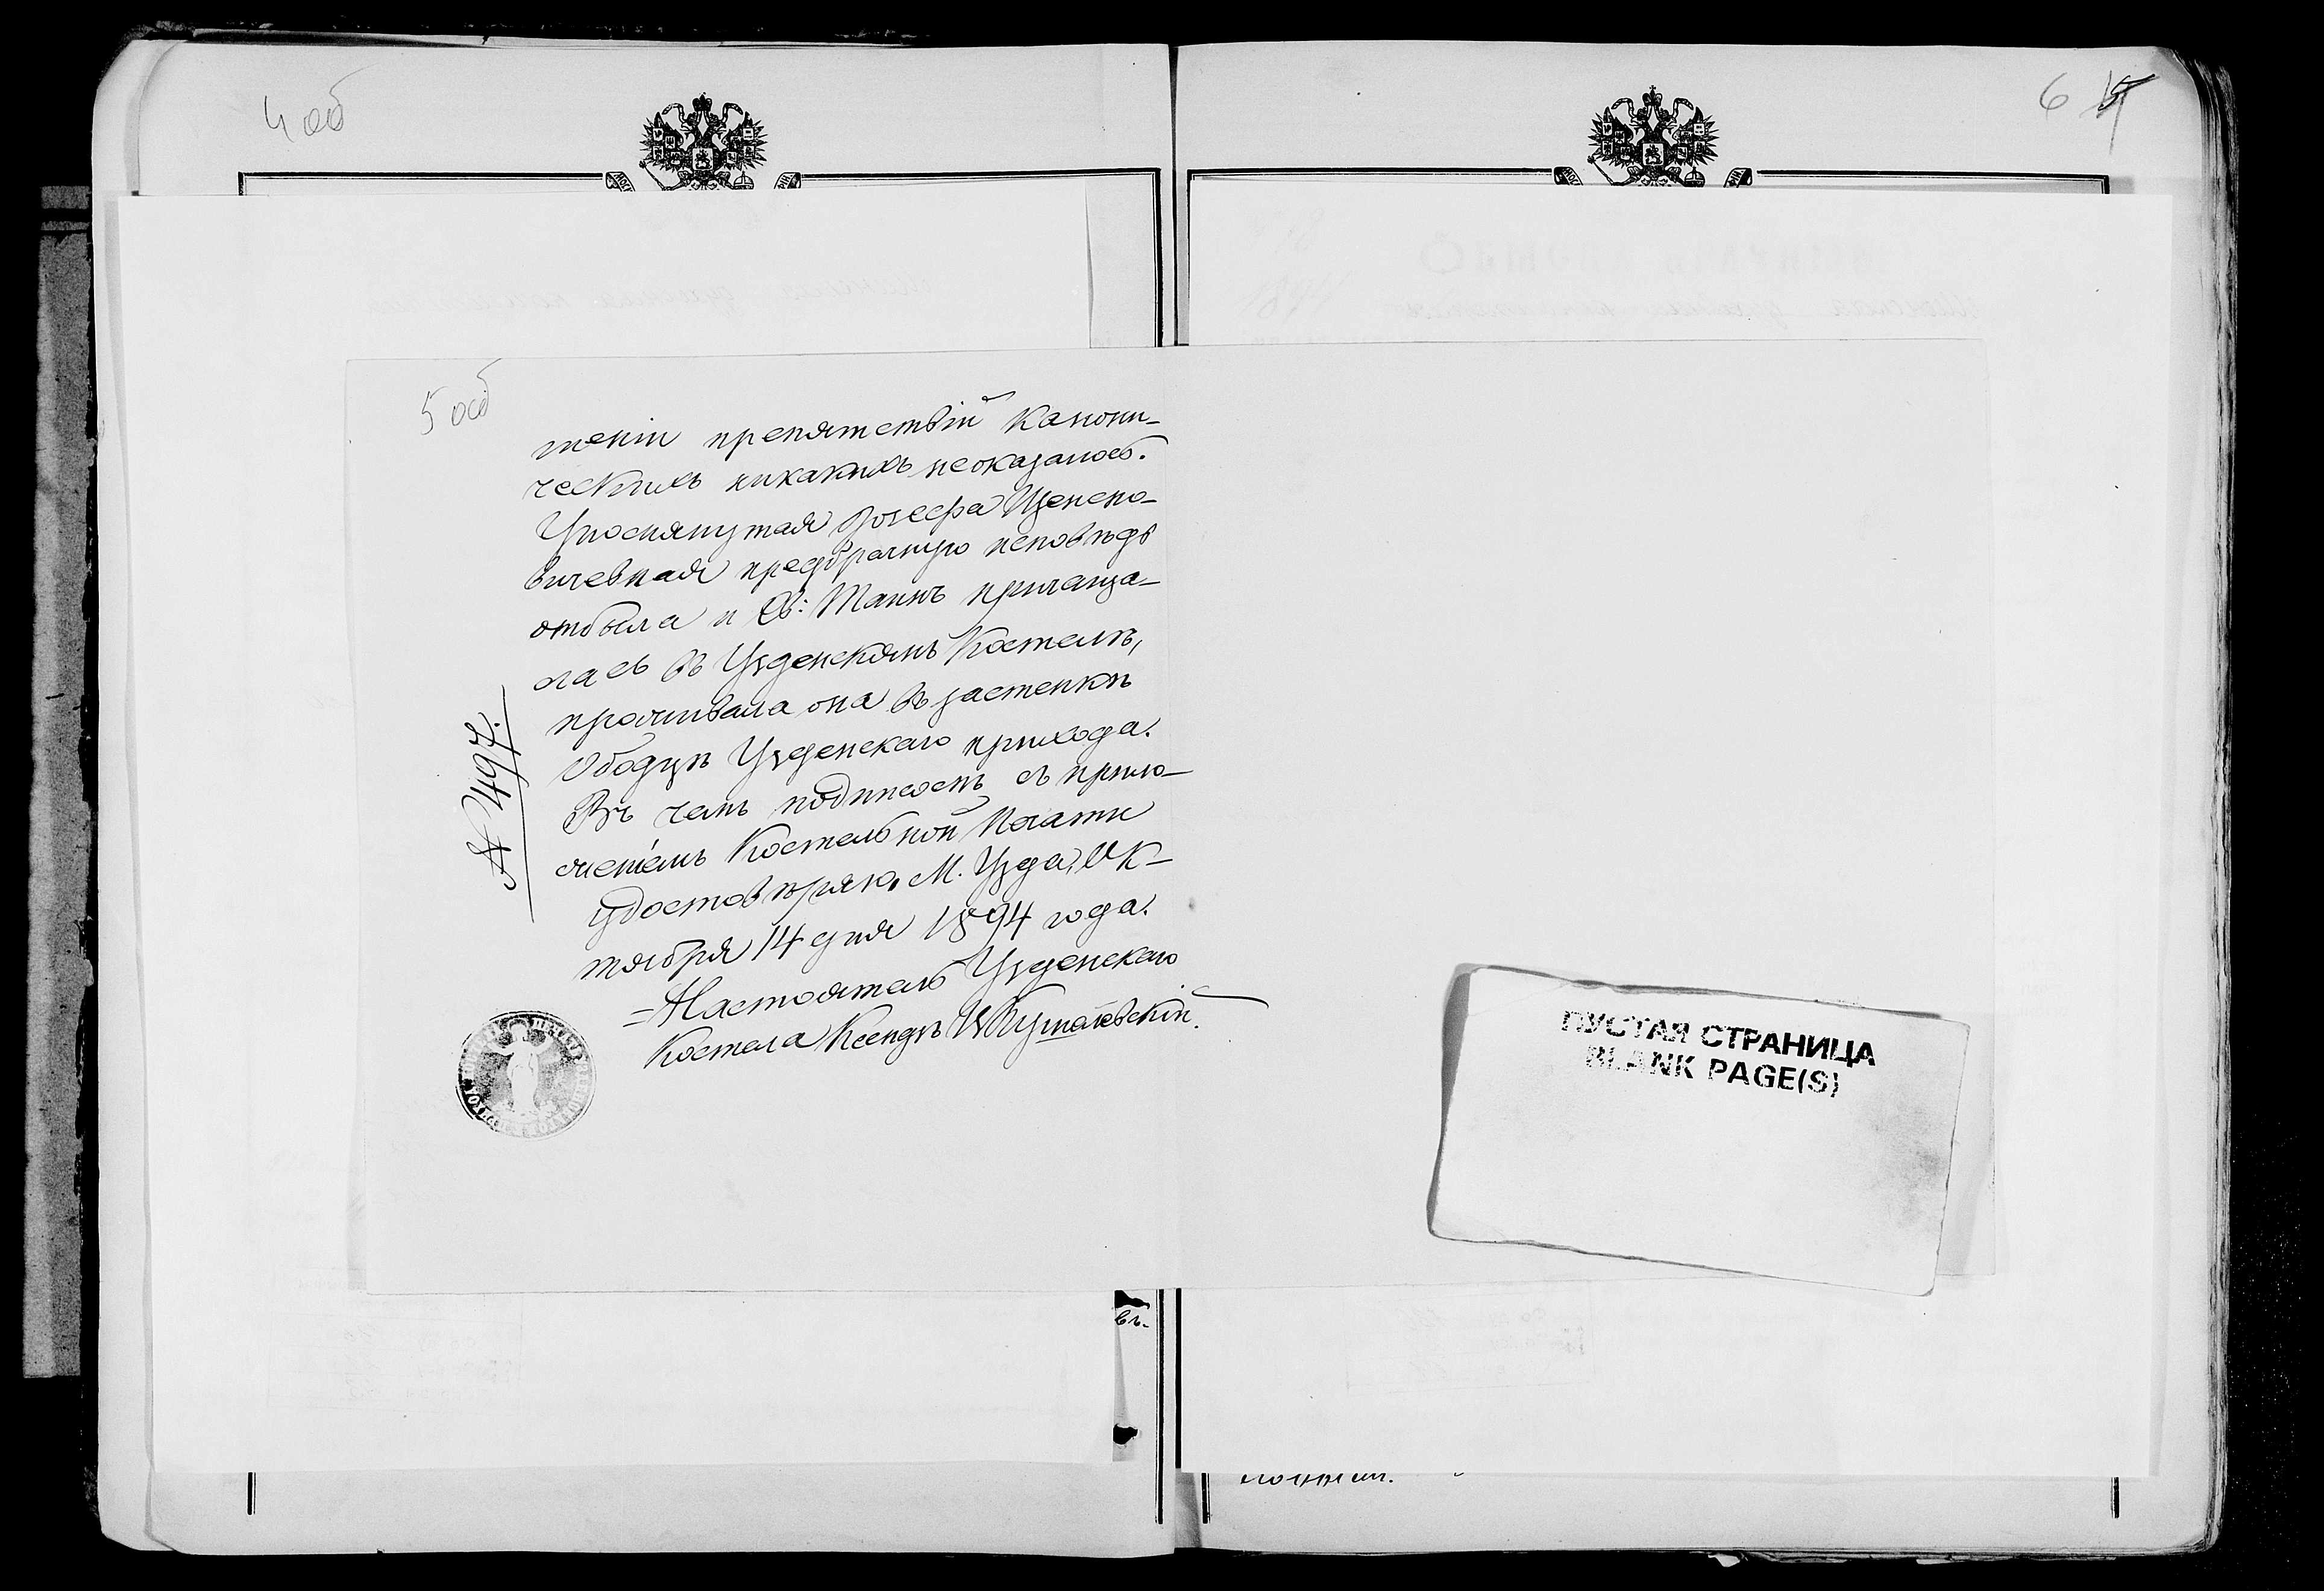 4 об
6
5 об
женіи препятствій Канони-
ческихъ никакихъ неоказалось.
Упомянутая Іозефа
вичевная предбрачную исповѣдь
отбыла и Св: Таинъ причаща-
лась въ Узденскомъ Костелѣ,
проживала она въ застенкѣ
Узденскаго прихода.
Въ чемъ подписомъ съ прило-
женіемъ Костельной Печати
удостовѣряю. М. Узда, Ок-
тября 14 дня 1894 года.
=Настоятель Узденскаго
Костела Ксендзъ
№ 497.
ПУСТАЯ СТРАНИЦА
BLANK PAGE(S)
въ.